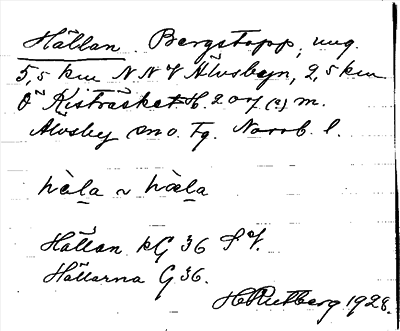 Hällan. Bergstopp, ung.
5,5 km NNV Älvsbyn, 2,5 km
Ö Kisträsket H. 207 (?) m.
Älvsby sn o. tg. Norrb. l.
hà̱la ~ hæ̀la
Hällan kG 36 SV.
Hällarna G 36.
H Rutberg 1928.